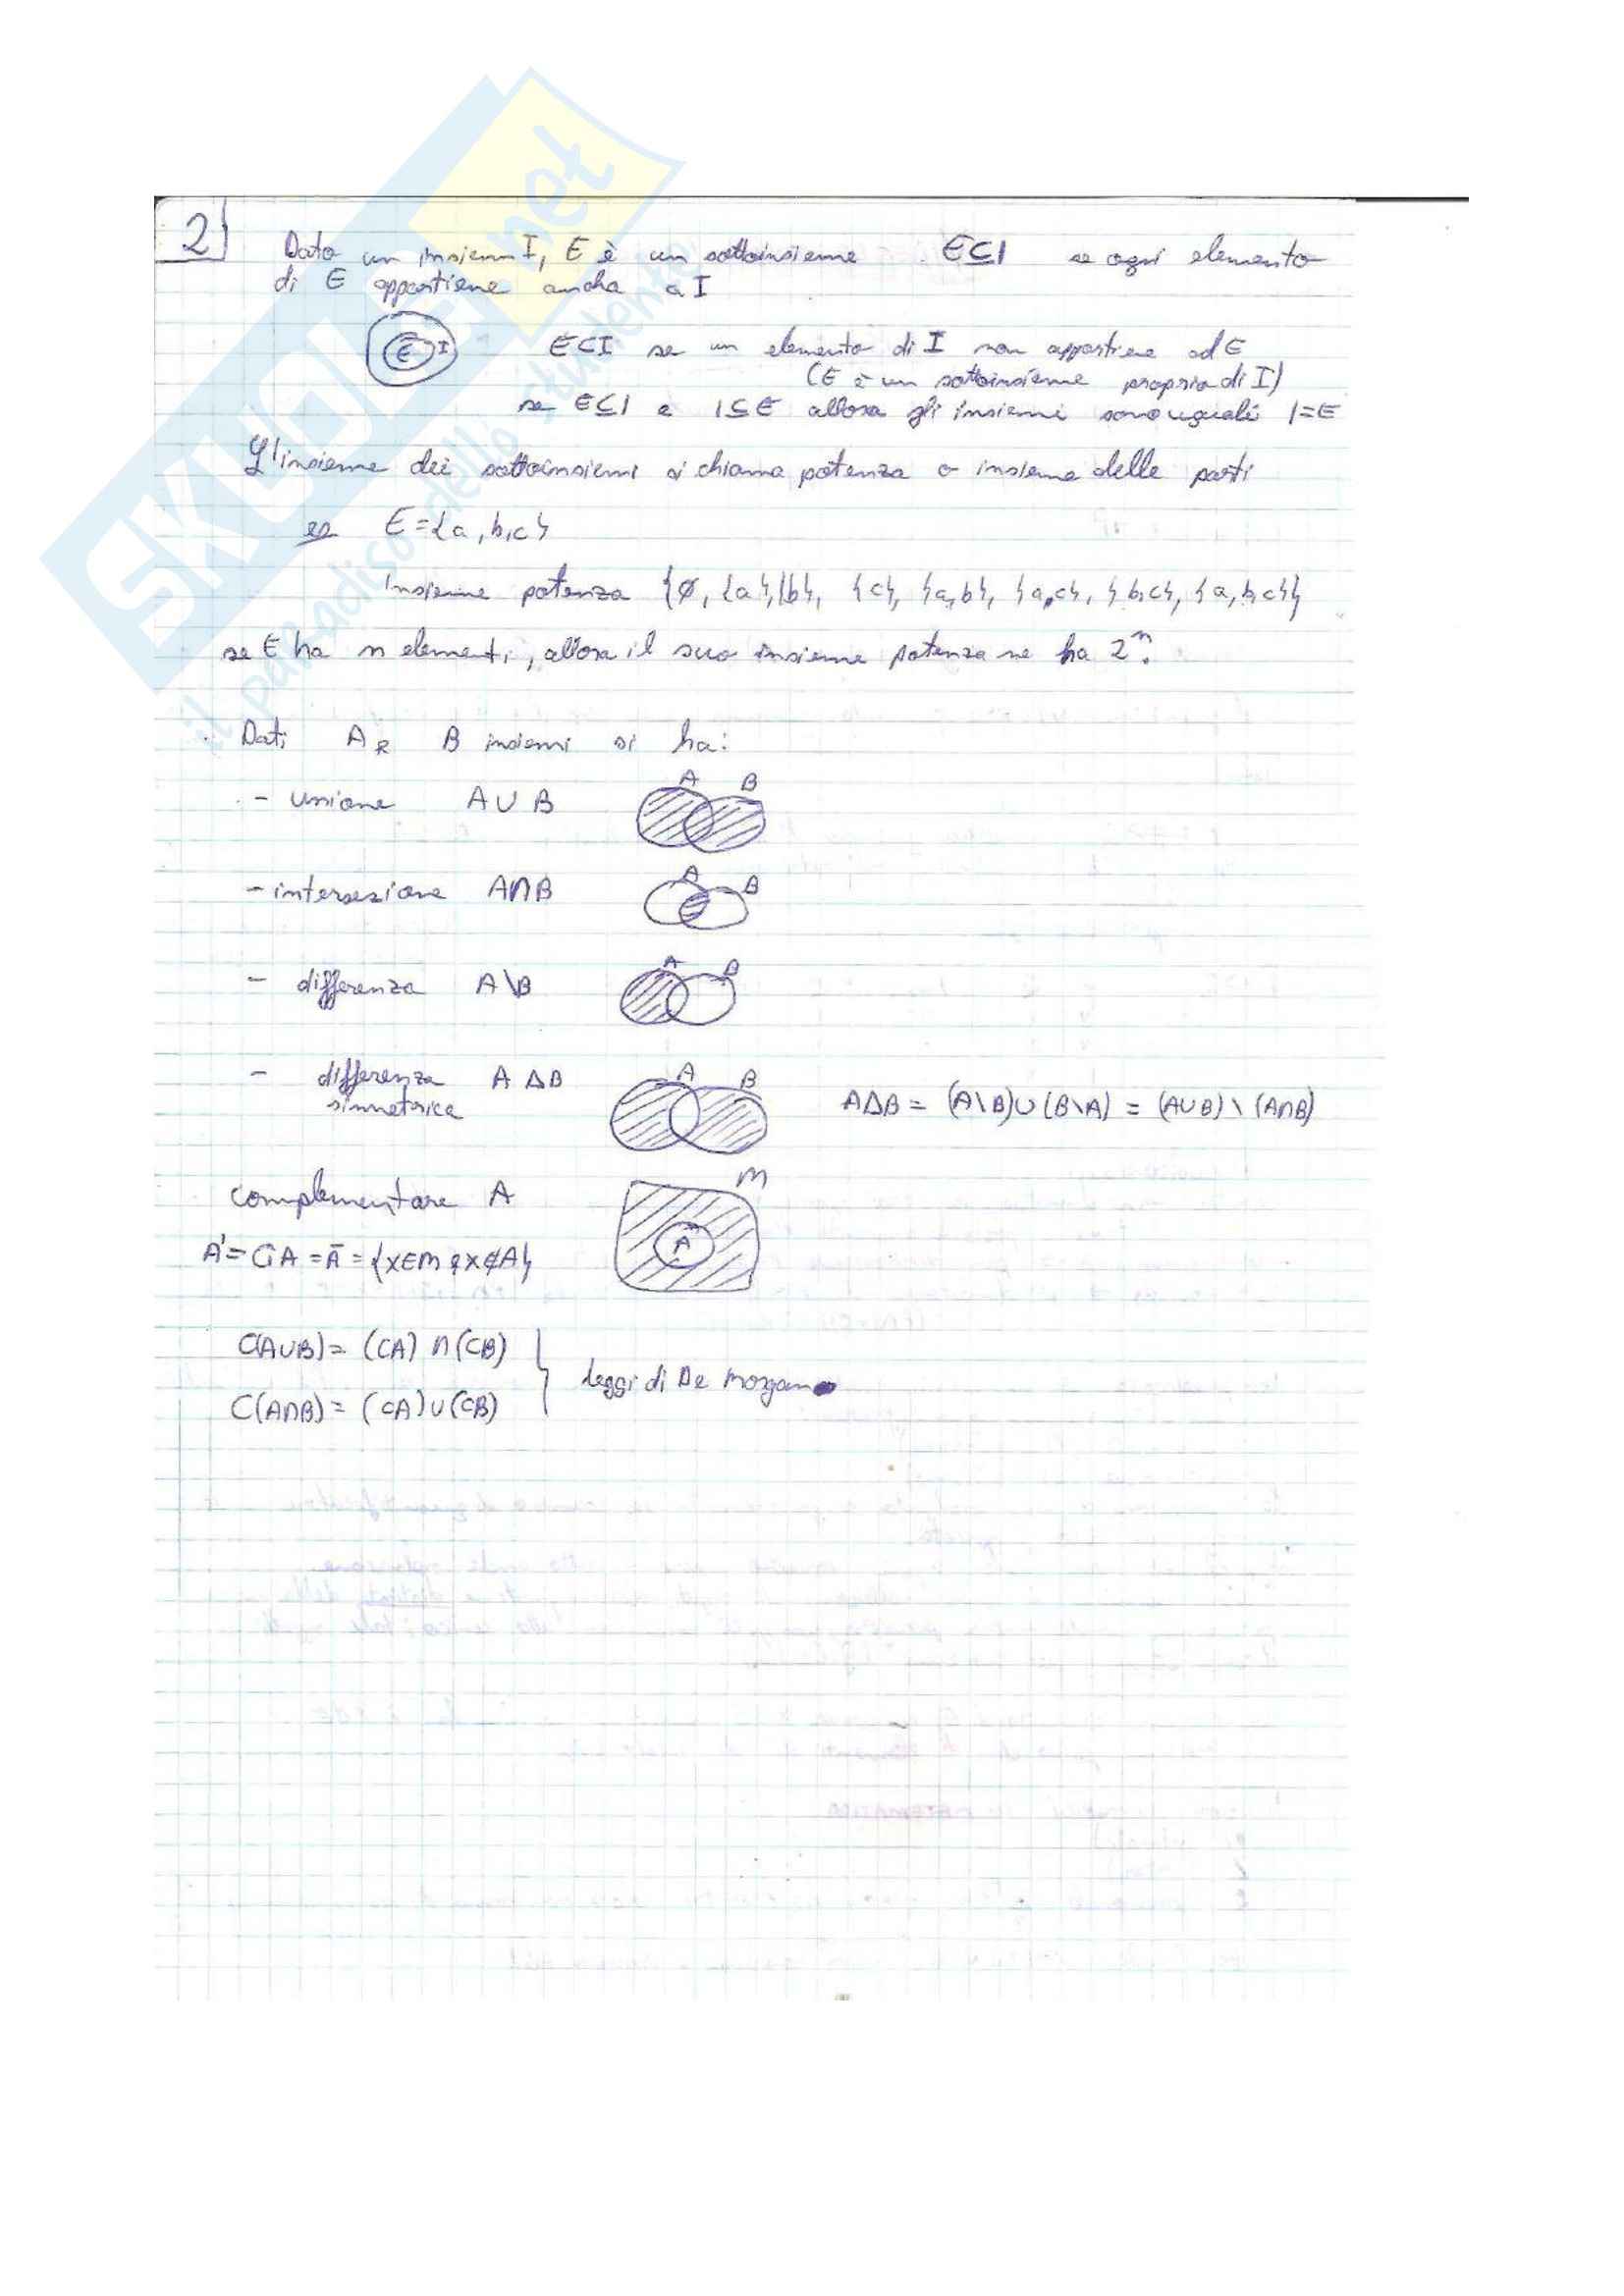 SKUOLA.net
il paradiso dello studente
2
Dato un insieme I, E è un sottoinsieme E⊆I se ogni elemento
di E appartiene anche a I
E I
E⊂I se un elemento di I non appartiene ad E
(E è un sottoinsieme proprio di I)
se E⊆I e I⊆E allora gli insiemi sono uguali I=E
L'insieme dei sottoinsiemi si chiama potenza o insieme delle parti
es E={a,b,c}
Insieme potenza {∅, {a},{b}, {c}, {a,b}, {a,c}, {b,c}, {a,b,c}}
se E ha n elementi, allora il suo insieme potenza ne ha 2ⁿ.
Dati A e B insiemi si ha:
- unione A∪B
A B
- intersezione A∩B
A B
- differenza A\B
A B
- differenza A Δ B
simmetrica
A B
AΔB = (A\B)∪(B\A) = (A∪B)\(A∩B)
complementare A
M
A
A'=CA=Ā={x∈M e x∉A}
C(A∪B)=(CA)∩(CB)
C(A∩B)=(CA)∪(CB)
leggi di De Morgan